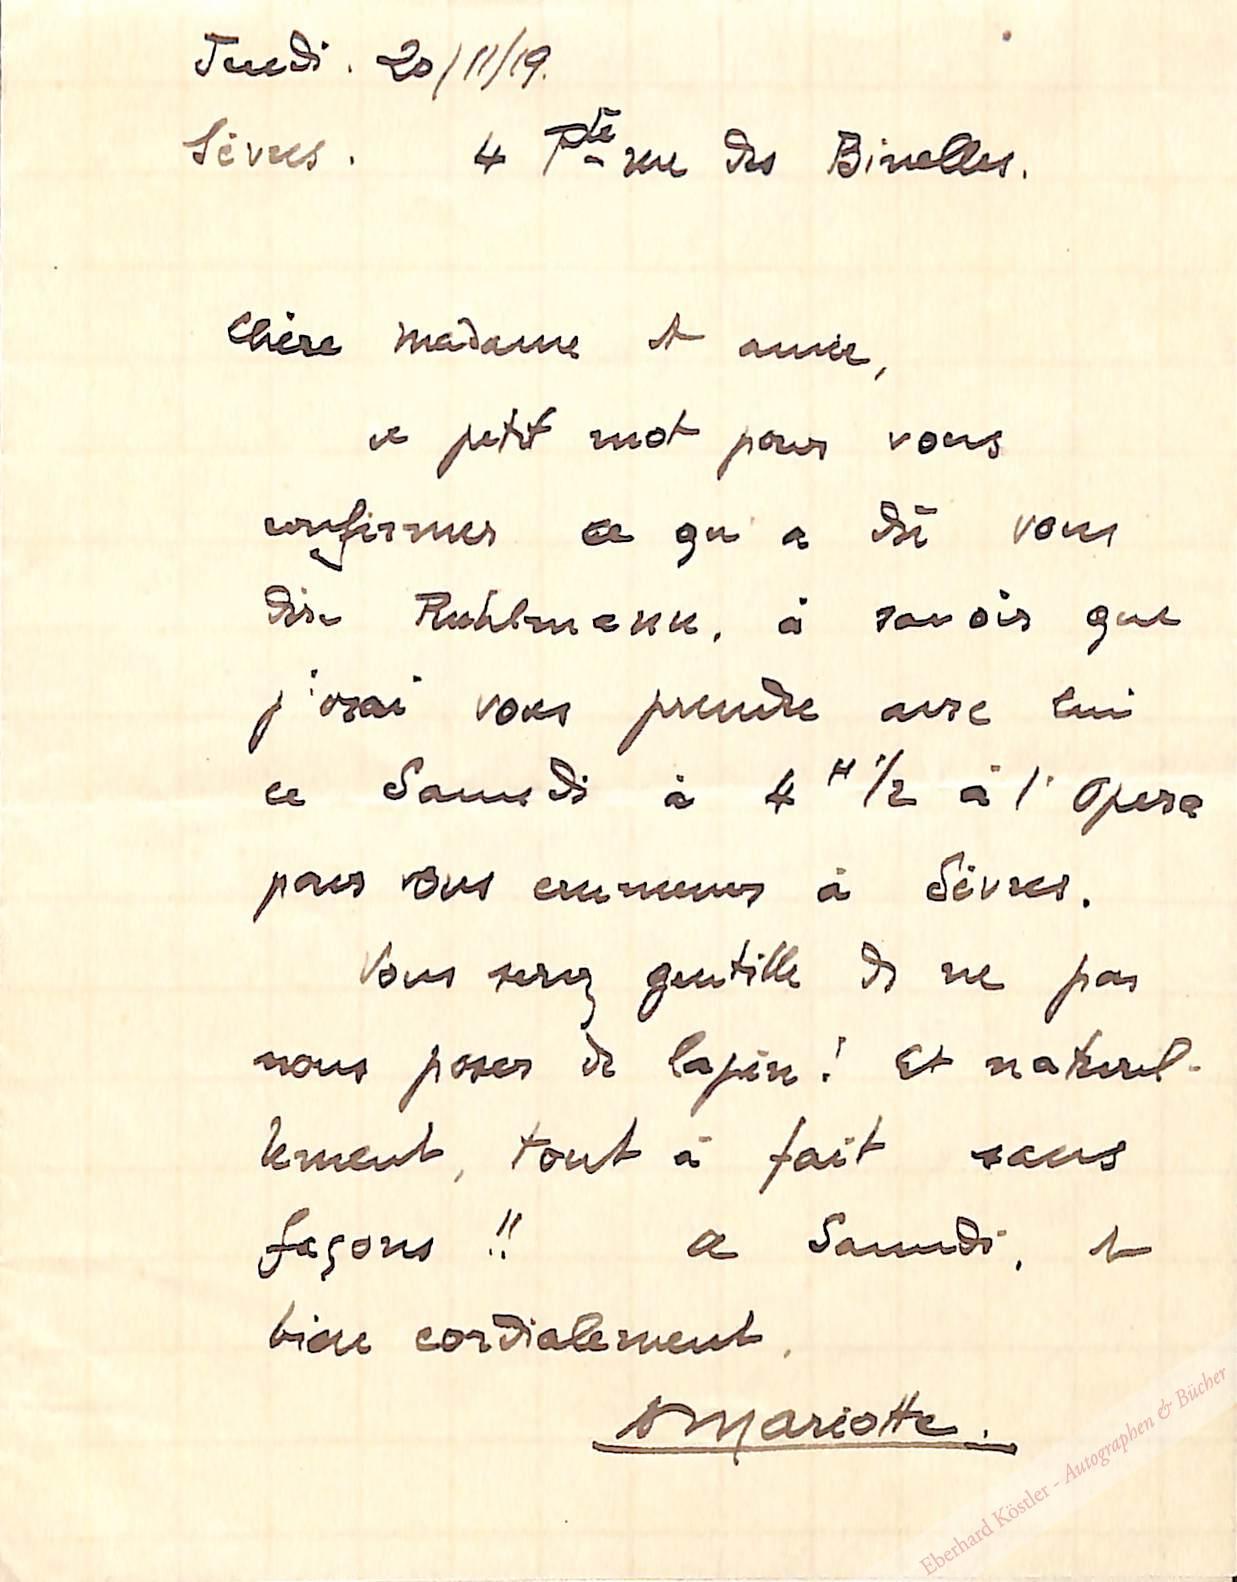 Jeudi. 20/11/19.
Sèvres. 4 Pte rue des Binelles.
Chère Madame et amie,
ce petit mot pour vous
confirmer ce qu'a dû vous
dire Ruhlmann, à savoir que
j'irai vous prendre avec lui
ce Samedi à 4 H 1/2 à l'Opera
pour vous emmener à Sèvres.
Vous serez gentille de ne pas
nous poser de lapin! Et naturel-
lement, tout à fait sans
façons!! A Samedi, et
bien cordialement.
A Mariotte.
Eberhard Köstler - Autographen & Bücher